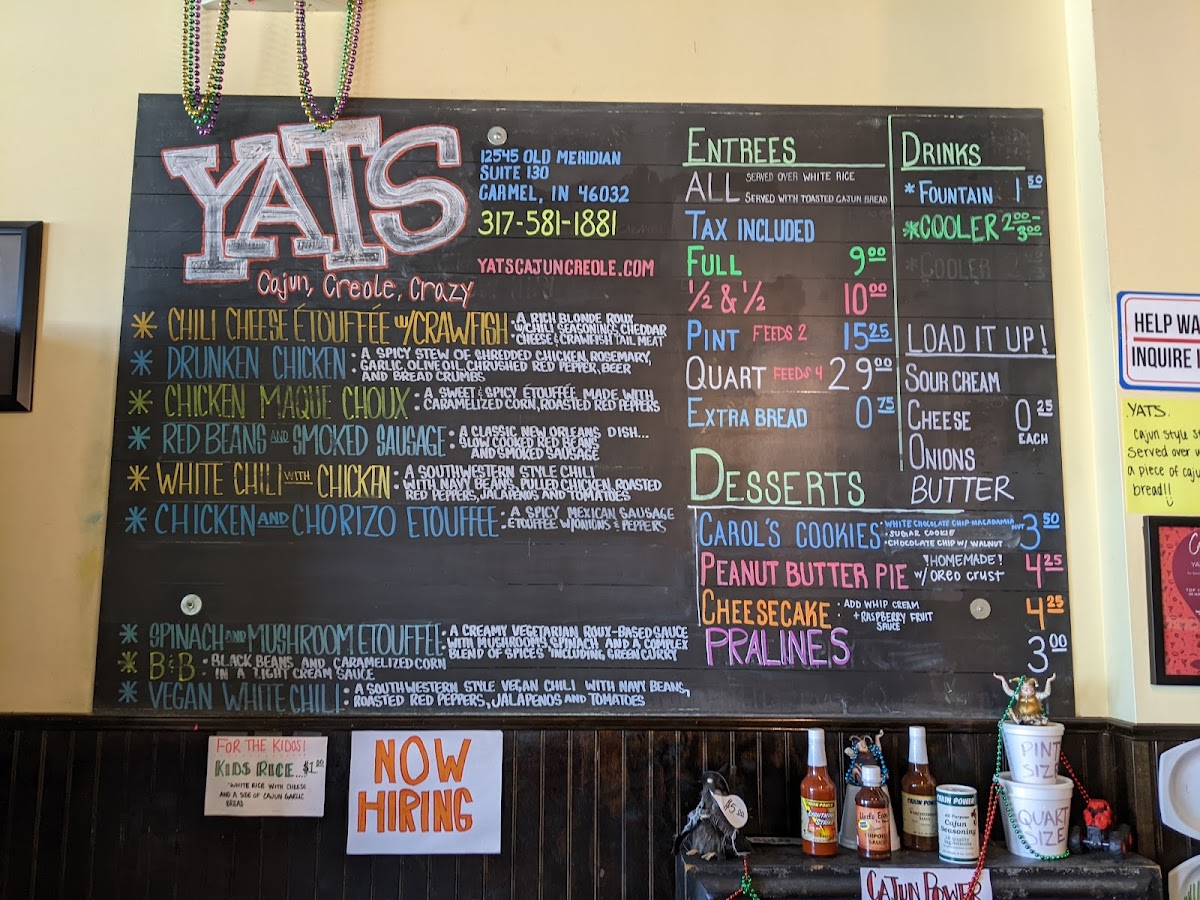 YATS
Cajun, Creole, Crazy
12545 OLD MERIDIAN
SUITE 130
CARMEL, IN 46032
317-581-1881
YATSCAJUNCREOLE.COM
* CHILI CHEESE ÉTOUFFÉE w/CRAWFISH: A RICH BLONDE ROUX
W/CHILI SEASONINGS, CHEDDAR
CHEESE & CRAWFISH TAIL MEAT
* DRUNKEN CHICKEN: A SPICY STEW OF SHREDDED CHICKEN, ROSEMARY,
GARLIC, OLIVE OIL, CHRUSHED RED PEPPER, BEER
AND BREAD CRUMBS
* CHICKEN MAQUE CHOUX: A SWEET & SPICY ÉTOUFFÉE MADE WITH
CARAMELIZED CORN, ROASTED RED PEPPERS
* RED BEANS AND SMOKED SAUSAGE: A CLASSIC NEW ORLEANS DISH...
SLOW COOKED RED BEANS
AND SMOKED SAUSAGE
* WHITE CHILI WITH CHICKEN: A SOUTHWESTERN STYLE CHILI
WITH NAVY BEANS, PULLED CHICKEN, ROASTED
RED PEPPERS, JALAPENOS AND TOMATOES
* CHICKEN AND CHORIZO ETOUFFEE: A SPICY MEXICAN SAUSAGE
ETOUFFEE W/ONIONS & PEPPERS
* SPINACH AND MUSHROOM ETOUFFÉE: A CREAMY VEGETARIAN ROUX-BASED SAUCE
WITH MUSHROOMS, SPINACH AND A COMPLEX
BLEND OF SPICES INCLUDING GREEN CURRY
* B&B: BLACK BEANS AND CARAMELIZED CORN
IN A LIGHT CREAM SAUCE
* VEGAN WHITE CHILI: A SOUTHWESTERN STYLE VEGAN CHILI WITH NAVY BEANS,
ROASTED RED PEPPERS, JALAPENOS AND TOMATOES
ENTREES
ALL SERVED OVER WHITE RICE
SERVED WITH TOASTED CAJUN BREAD
TAX INCLUDED
FULL 9.00
½ & ½ 10.00
PINT FEEDS 2 15.25
QUART FEEDS 4 29.00
EXTRA BREAD 0.75
DRINKS
* FOUNTAIN 1.50
* COOLER 2.00-3.00
* COOLER
LOAD IT UP!
SOUR CREAM
CHEESE 0.25 EACH
ONIONS
BUTTER
DESSERTS
CAROL'S COOKIES: WHITE CHOCOLATE CHIP MACADAMIA NUT 3.50
• SUGAR COOKIE
• CHOCOLATE CHIP W/ WALNUT
PEANUT BUTTER PIE !HOMEMADE! 4.25
W/ OREO CRUST
CHEESECAKE: ADD WHIP CREAM 4.25
+ RASPBERRY FRUIT
SAUCE
PRALINES 3.00
HELP WA
INQUIRE
YATS.
Cajun style
served over
a piece of
bread!!
FOR THE KIDOS!
KIDS RICE...$1.00
*WHITE RICE WITH CHEESE
AND A SIDE OF CAJUN GARLIC
BREAD
NOW
HIRING
PINT
SIZE
QUART
SIZE
CAJUN POWER
Cajun
Seasoning
CAJUN POWER